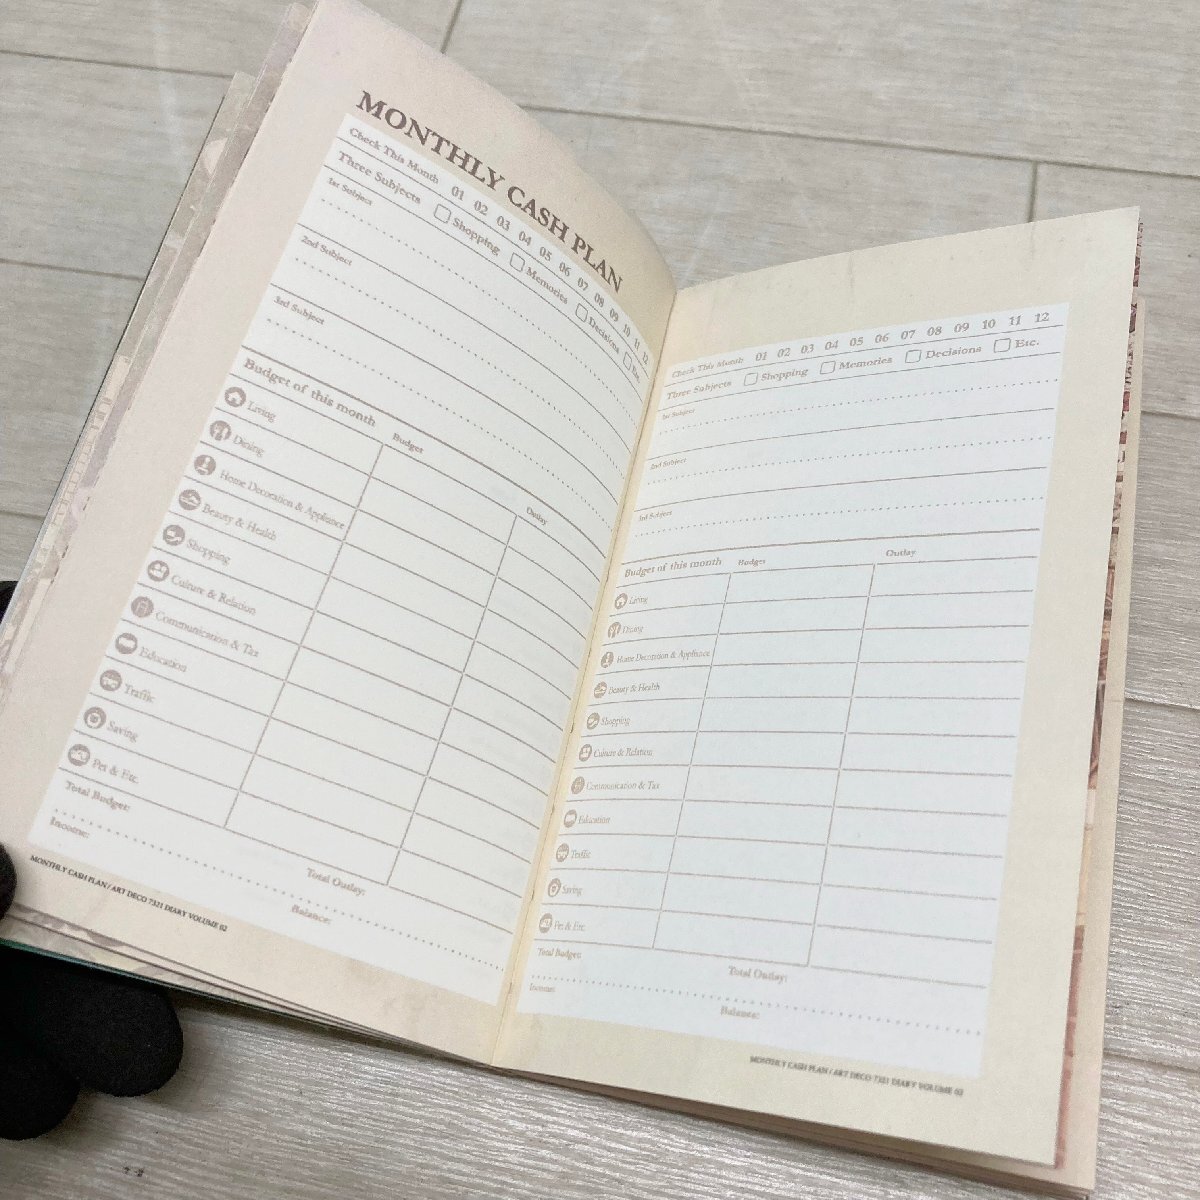 MONTHLY CASH PLAN
Check This Month 01 02 03 04 05 06 07 08 09 10 11 12
Three Subjects Shopping Memories Decisions Etc.
1st Subject
2nd Subject
3rd Subject
Budget of this month Budget Outlay
Living
Dining
Home Decoration & Appliance
Beauty & Health
Shopping
Culture & Relation
Communication & Tax
Education
Traffic
Saving
Pet & Etc.
Total Budget: Total Outlay:
Income: Balance:
MONTHLY CASH PLAN / ART DECO 7321 DIARY VOLUME 02
Check This Month 01 02 03 04 05 06 07 08 09 10 11 12
Three Subjects Shopping Memories Decisions Etc.
1st Subject
2nd Subject
3rd Subject
Budget of this month Budget Outlay
Living
Dining
Home Decoration & Appliance
Beauty & Health
Shopping
Culture & Relation
Communication & Tax
Education
Traffic
Saving
Pet & Etc.
Total Budget: Total Outlay:
Income: Balance:
MONTHLY CASH PLAN / ART DECO 7321 DIARY VOLUME 02